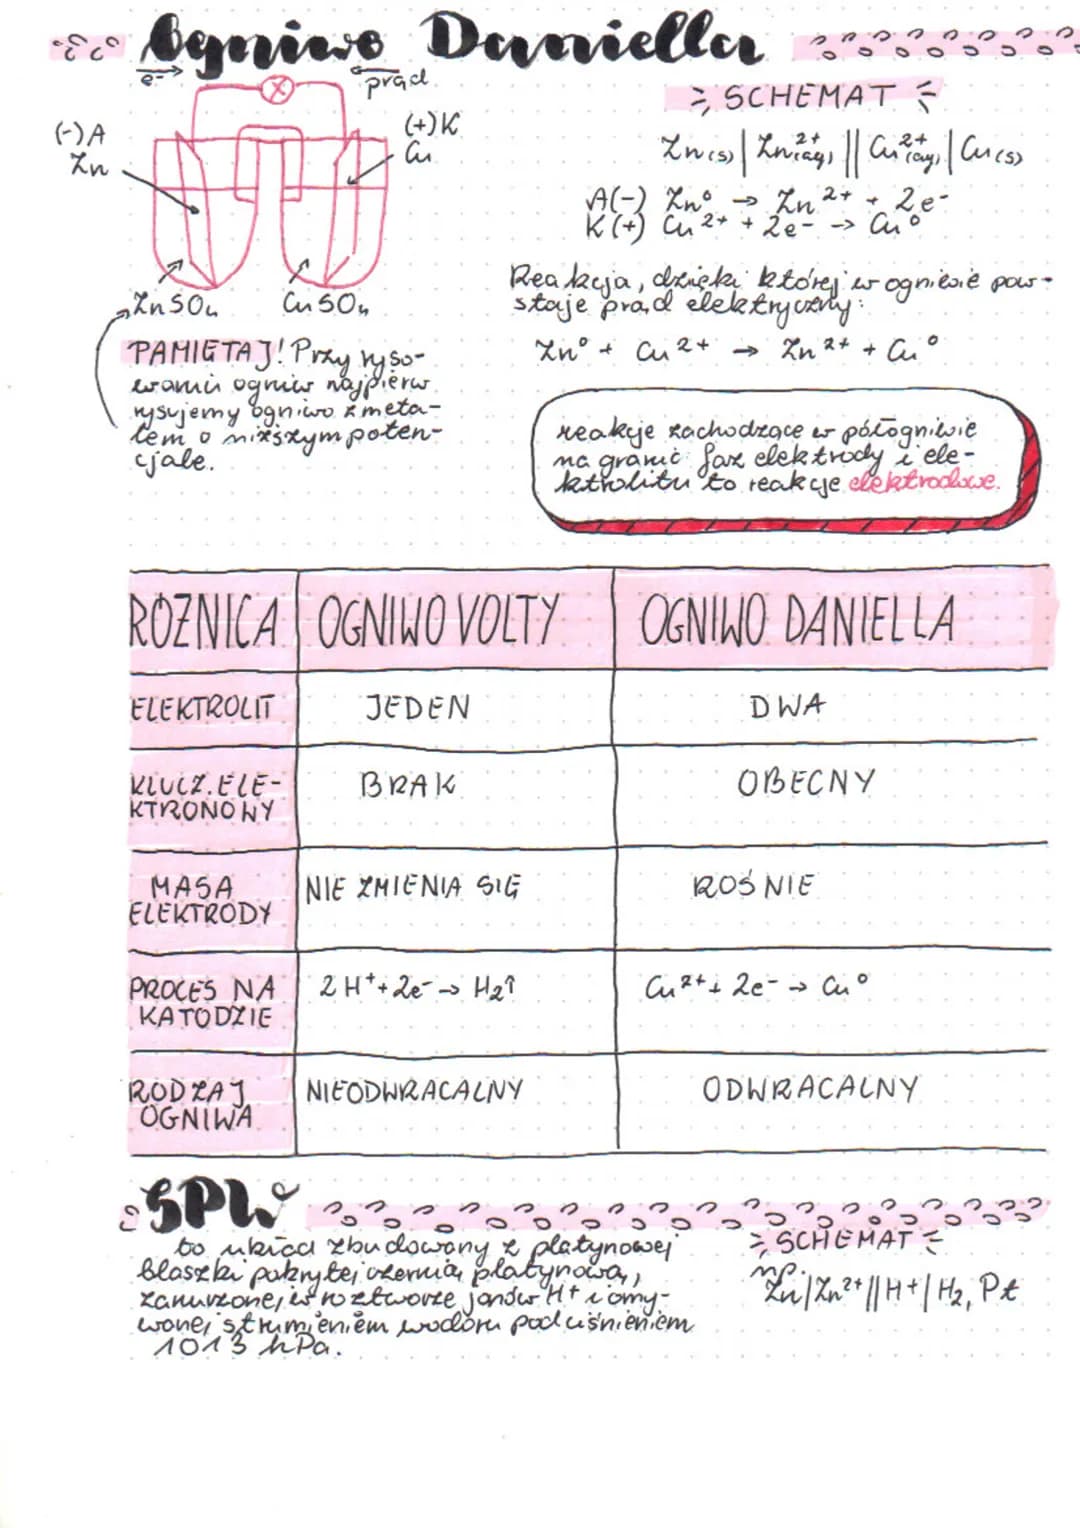 Ogniwo Daniella
e-
prąd
(-)A
Zn
(+)K
Cu
ZnSO₄
CuSO₄
PAMIĘTAJ! Przy ryso-
waniu ogniw najpierw
rysujemy ogniwo z meta-
lem o niższym poten-
cjale.
SCHEMAT
Zn(s) | Zn²⁺(aq) || Cu²⁺(aq) | Cu(s)
A(-) Zn⁰ → Zn²⁺ + 2e⁻
K(+) Cu²⁺ + 2e⁻ → Cu⁰
Reakcja, dzięki której w ogniwie pow-
staje prąd elektryczny:
Zn⁰ + Cu²⁺ → Zn²⁺ + Cu⁰
reakcje zachodzące w półogniwie
na granic faz elektrody i ele-
ktrolitu to reakcje elektrodowe.
RÓŻNICA OGNIWO VOLTY OGNIWO DANIELLA
ELEKTROLIT JEDEN DWA
KLUCZ. ELE-
KTRONOWY BRAK OBECNY
MASA
ELEKTRODY NIE ZMIENIA SIĘ ROŚNIE
PROCES NA
KATODZIE 2H⁺ + 2e⁻ → H₂↑ Cu²⁺ + 2e⁻ → Cu⁰
RODZAJ
OGNIWA NIEODWRACALNY ODWRACALNY
SPW
to układ zbudowany z platynowej
blaszki pokrytej czernią platynową,
zanurzonej w roztworze jonów H⁺ i omy-
wanej strumieniem wodoru pod ciśnieniem
1013 hPa.
SCHEMAT
np.
Zn | Zn²⁺ || H⁺ | H₂, Pt